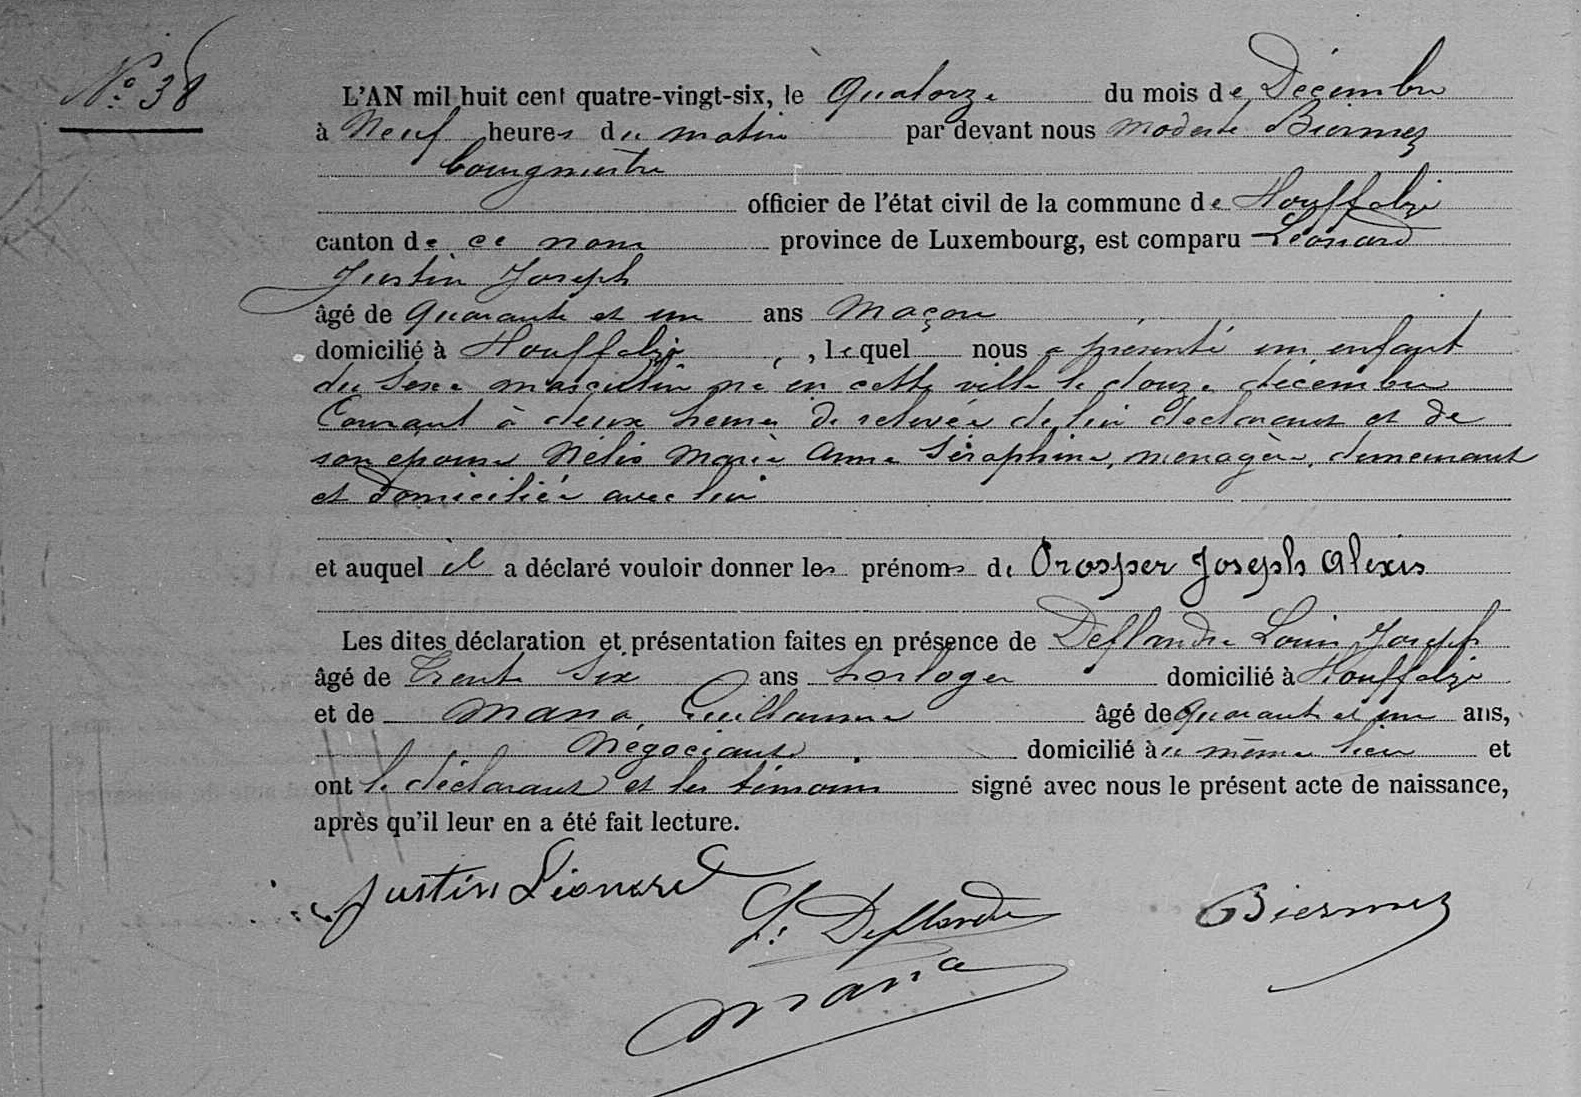 N° 38
L'AN mil huit cent quatre-vingt-six, le Quatorze du mois de Décembre
à Neuf heures du matin par devant nous Modeste Biermez
bourgmestre
officier de l'état civil de la commune de Houffalize
canton de ce nom province de Luxembourg, est comparu Léonard
Justin Joseph
âgé de Quarante et un ans Maçon
domicilié à Houffalize, lequel nous a présenté un enfant
du sexe masculin né en cette ville le douze décembre
Courant à deux heures de relevée de lui déclarant et de
son epouse Nélis Marie Anne Séraphine, ménagère, demeurant
et domiciliée avec lui
et auquel il a déclaré vouloir donner les prénoms de Prosper Joseph Alexis
Les dites déclaration et présentation faites en présence de Deflandre Louis Joseph
âgé de Trente Six ans horloger domicilié à Houffalize
et de Mana, Guillaume âgé de quarante et un ans,
Négociant domicilié au même lieu et
ont le déclarant et les témoins signé avec nous le présent acte de naissance,
après qu'il leur en a été fait lecture.
Justin Léonard
L. Deflandre
Biermez
Mana